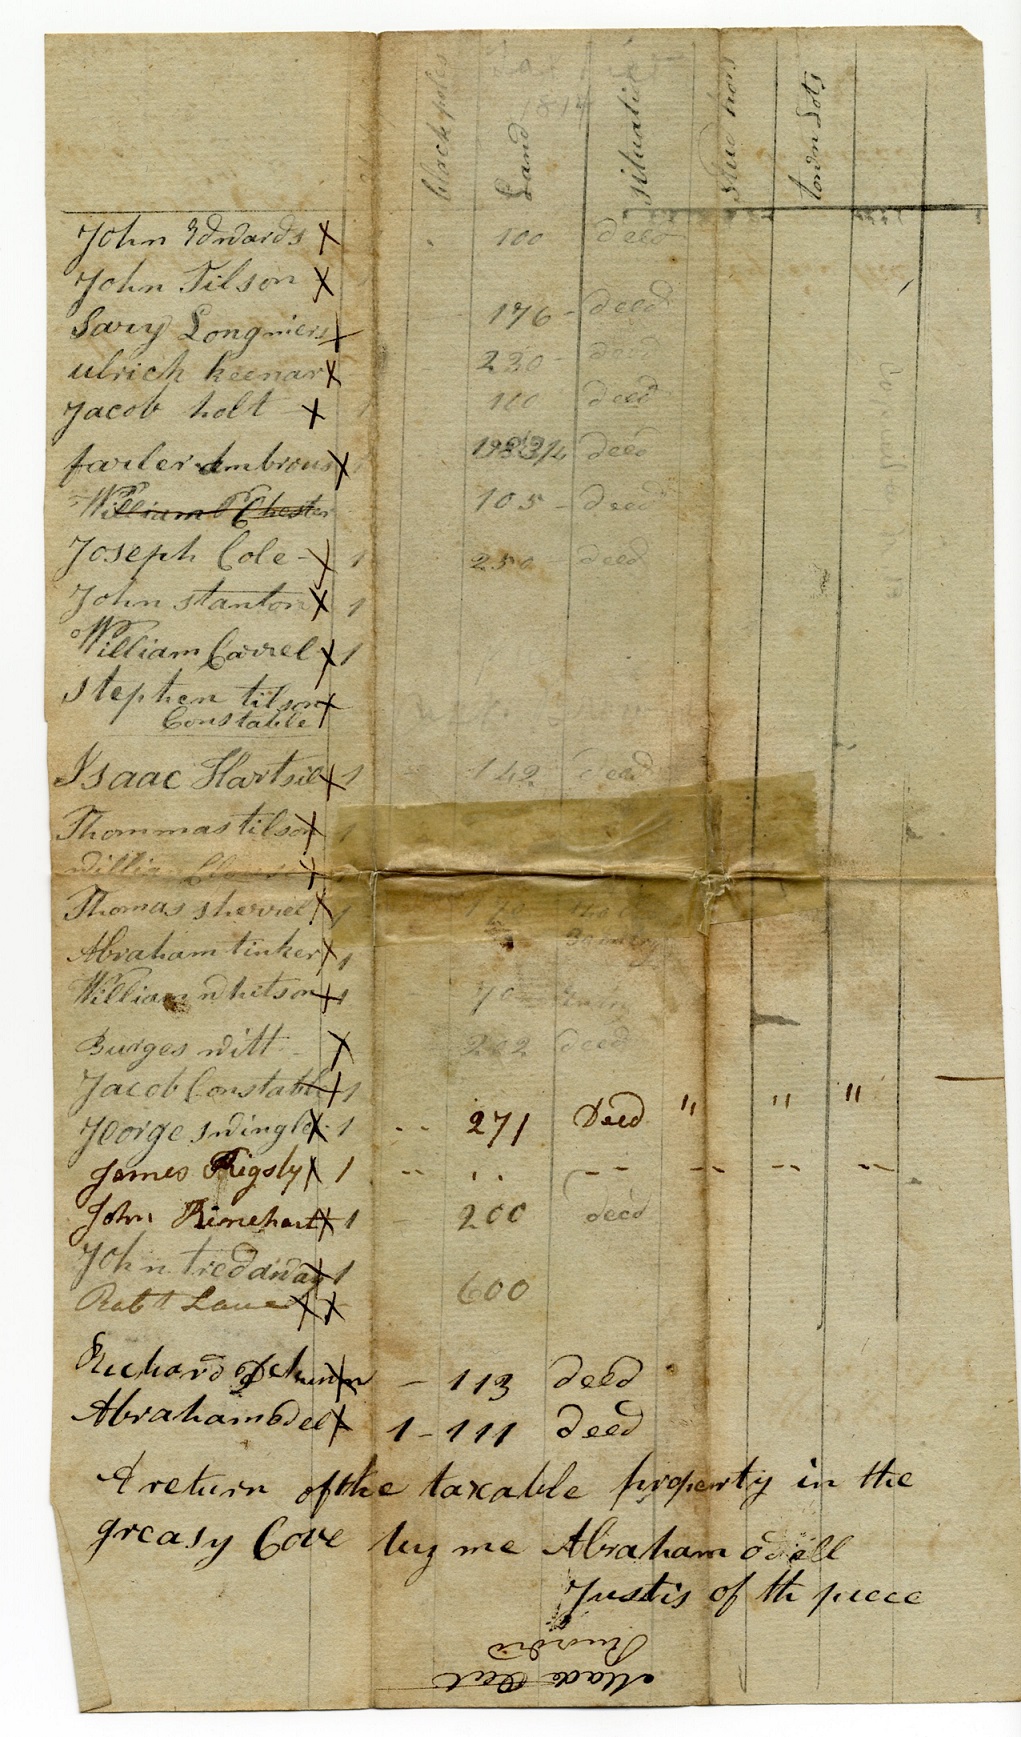 black poles Land situation stud hors town Lots
1814
John Edwards X 100 deed
John Tilson X
Savy Longmiers X 176 - deed
ulrich keenar X 230 - deed
Jacob holt - X 1 110 deed
farler Ambrous X 1 deed
William Chester 105 - deed
Joseph Cole - X 1 250 - deed
John stanton X 1
William Carrel X 1
Stephen tilson X
Constable
Isaac Hartsil X 1 142 deed
Thommas tilson X 1
William X
Thomas sherrel X 1
Abraham tinker X 1
William whitson X 1 70 Entry
Burges witt - X 202 deed
Jacob Constable X 1
George swingle X 1 -- 271 Deed " " "
James Rigsby X 1 -- .. -- -- -- --
John Rinehart X 1 - 200 deed
John treddway X 1 600
Robt Lane X X
Richard X - 113 deed
Abraham odel X 1 - 111 deed
A return of the taxable property in the
greasy Cove by me Abraham odell
Justis of th piece
Made Out